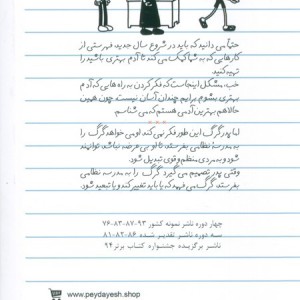 حتماً می دانید که باید در شروع سال جدید، فهرستی از
کارهایی که به شما کمک می کند تا آدم بهتری باشید را
تهیه کنید.
خب، مشکل اینجاست که فکر کردن به راه هایی که آدم
بهتری بشوم برایم چندان آسان نیست، چون همین
حالا هم بهترین آدمی هستم که می شناسم.
اما پدر گرگ این طور فکر نمی کند. او می خواهد گرگ را
به مدرسه نظامی بفرستد، تا او بی عرضه نباشد، توانمند
شود و به مردی منظم و قوی تبدیل شود.
وقتی پدر تصمیم می گیرد گرگ را به مدرسه نظامی
بفرستد، گرگ می فهمد که یا باید تغییر کند و یا تبعید شود.
چهار دوره ناشر نمونه کشور ۹۳-۸۷-۸۳-۷۶
سه دوره ناشر تقدیر شده ۸۶-۸۲-۸۱
ناشر برگزیده جشنواره کتاب برتر ۹۴
www.peydayesh.shop